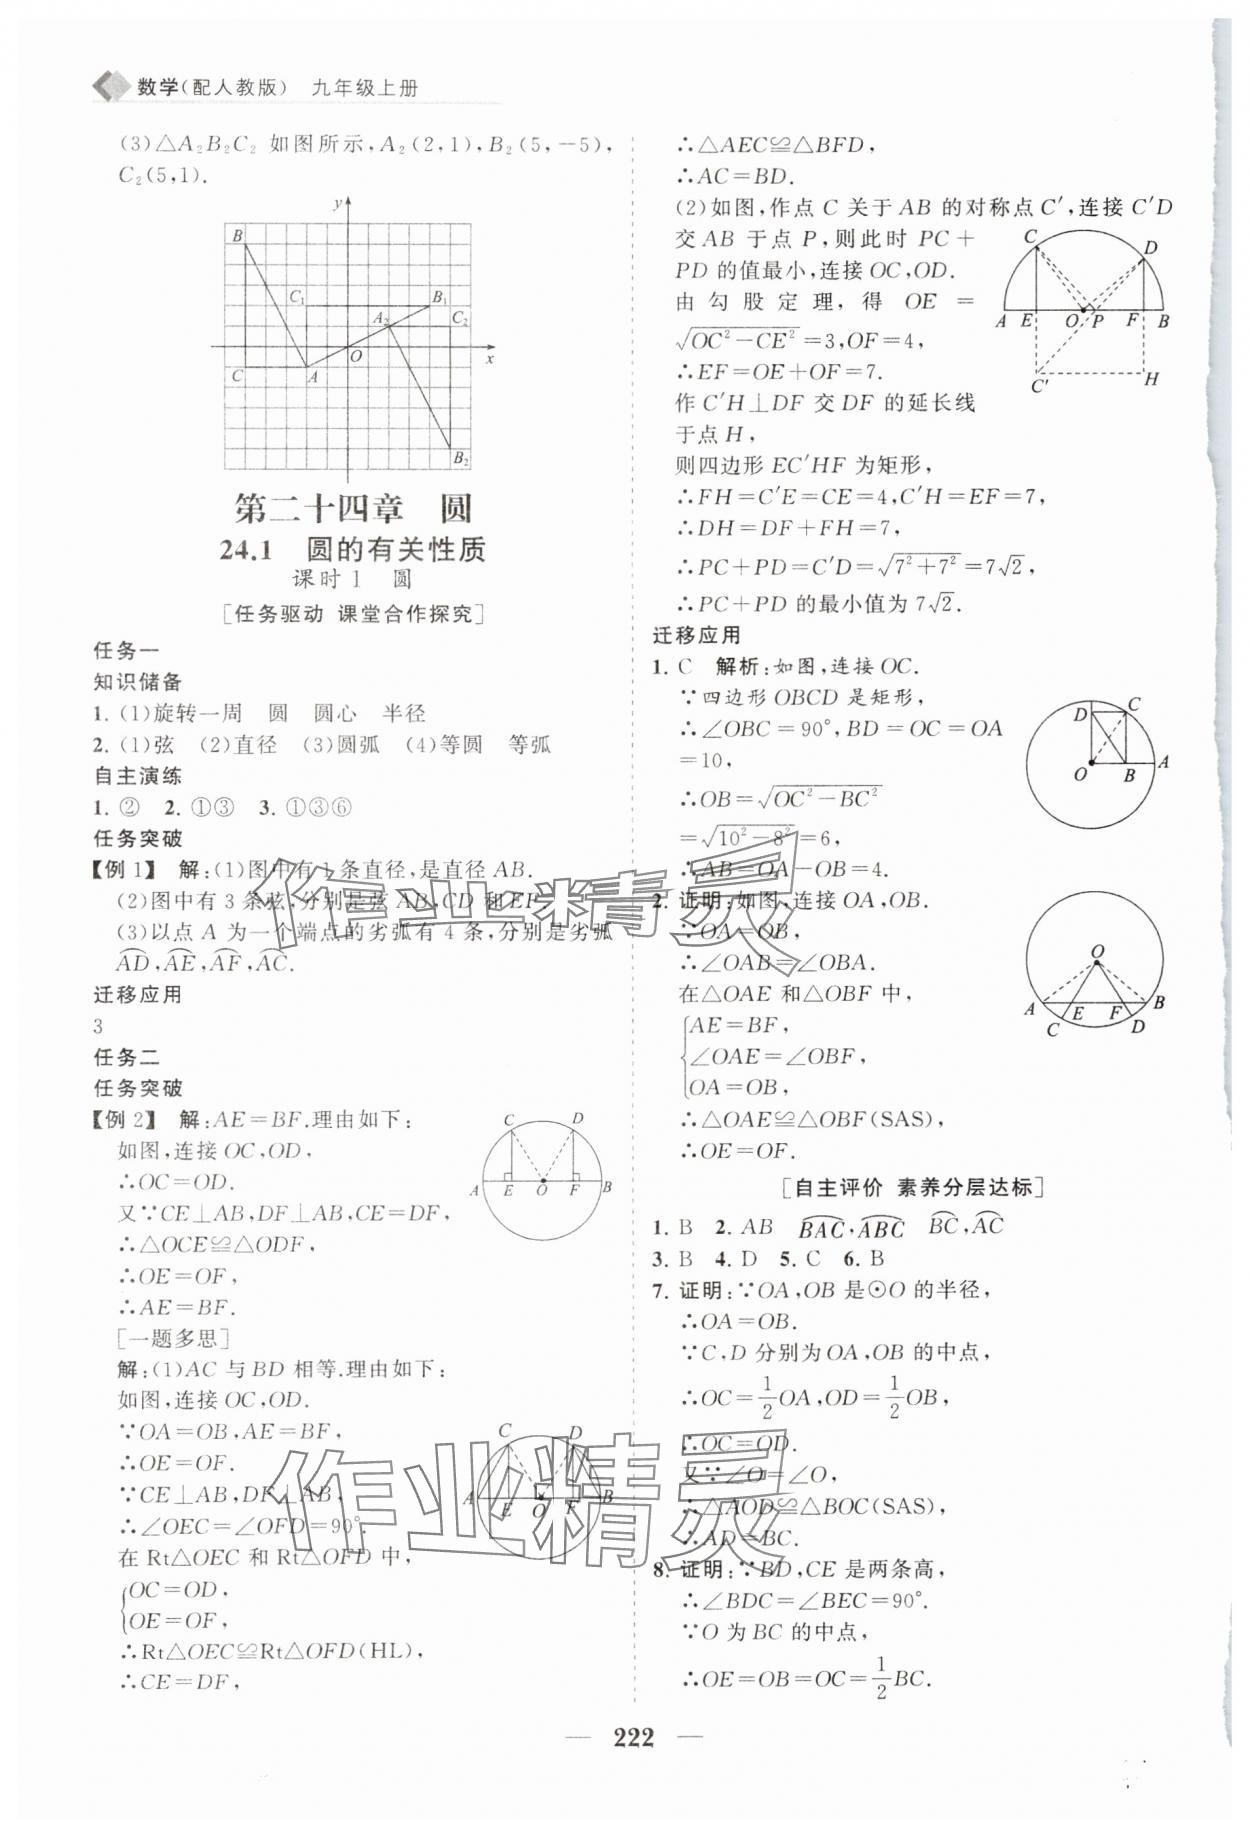 数学(配人教版) 九年级上册
(3)△A₂B₂C₂ 如图所示,A₂(2,1),B₂(5,-5),
C₂(5,1).
y
B
C₁
B₁
A₂
C₂
O
x
C
A
B₂
第二十四章 圆
24.1 圆的有关性质
课时1 圆
[任务驱动 课堂合作探究]
任务一
知识储备
1. (1)旋转一周 圆 圆心 半径
2. (1)弦 (2)直径 (3)圆弧 (4)等圆 等弧
自主演练
1. ② 2. ①③ 3. ①③⑥
任务突破
【例1】 解:(1)图中有1条直径,是直径AB.
(2)图中有3条弦,分别是弦AD,CD和EF.
(3)以点A为一个端点的劣弧有4条,分别是劣弧
A͡D,A͡E,A͡F,A͡C.
迁移应用
3
任务二
任务突破
【例2】 解:AE=BF.理由如下:
如图,连接OC,OD,
∴OC=OD.
又∵CE⊥AB,DF⊥AB,CE=DF,
∴△OCE≌△ODF,
∴OE=OF,
∴AE=BF.
C D
A E O F B
[一题多思]
解:(1)AC与BD相等.理由如下:
如图,连接OC,OD.
∵OA=OB,AE=BF,
∴OE=OF.
∵CE⊥AB,DF⊥AB,
∴∠OEC=∠OFD=90°.
在Rt△OEC和Rt△OFD中,
{OC=OD,
OE=OF,
∴Rt△OEC≌Rt△OFD(HL),
∴CE=DF,
C D
A E O F B
∴△AEC≌△BFD,
∴AC=BD.
(2)如图,作点C关于AB的对称点C′,连接C′D
交AB于点P,则此时PC+
PD的值最小,连接OC,OD.
由勾股定理,得OE=
√(OC²-CE²)=3,OF=4,
∴EF=OE+OF=7.
作C′H⊥DF交DF的延长线
于点H,
则四边形EC′HF为矩形,
∴FH=C′E=CE=4,C′H=EF=7,
∴DH=DF+FH=7,
∴PC+PD=C′D=√(7²+7²)=7√2,
∴PC+PD的最小值为7√2.
C D
A E O P F B
C′ H
迁移应用
1. C 解析:如图,连接OC.
∵四边形OBCD是矩形,
∴∠OBC=90°,BD=OC=OA
=10,
∴OB=√(OC²-BC²)
=√(10²-8²)=6,
∴AB=OA-OB=4.
D C
O B A
2. 证明:如图,连接OA,OB.
∵OA=OB,
∴∠OAB=∠OBA.
在△OAE和△OBF中,
{AE=BF,
∠OAE=∠OBF,
OA=OB,
∴△OAE≌△OBF(SAS),
∴OE=OF.
O
A E F B
C D
[自主评价 素养分层达标]
1. B 2. AB B͡AC,A͡BC B͡C,A͡C
3. B 4. D 5. C 6. B
7. 证明:∵OA,OB是⊙O的半径,
∴OA=OB.
∵C,D分别为OA,OB的中点,
∴OC=1/2OA,OD=1/2OB,
∴OC=OD.
又∵∠O=∠O,
∴△AOD≌△BOC(SAS),
∴AD=BC.
8. 证明:∵BD,CE是两条高,
∴∠BDC=∠BEC=90°.
∵O为BC的中点,
∴OE=OB=OC=1/2BC.
作业精灵
作业精灵
— 222 —